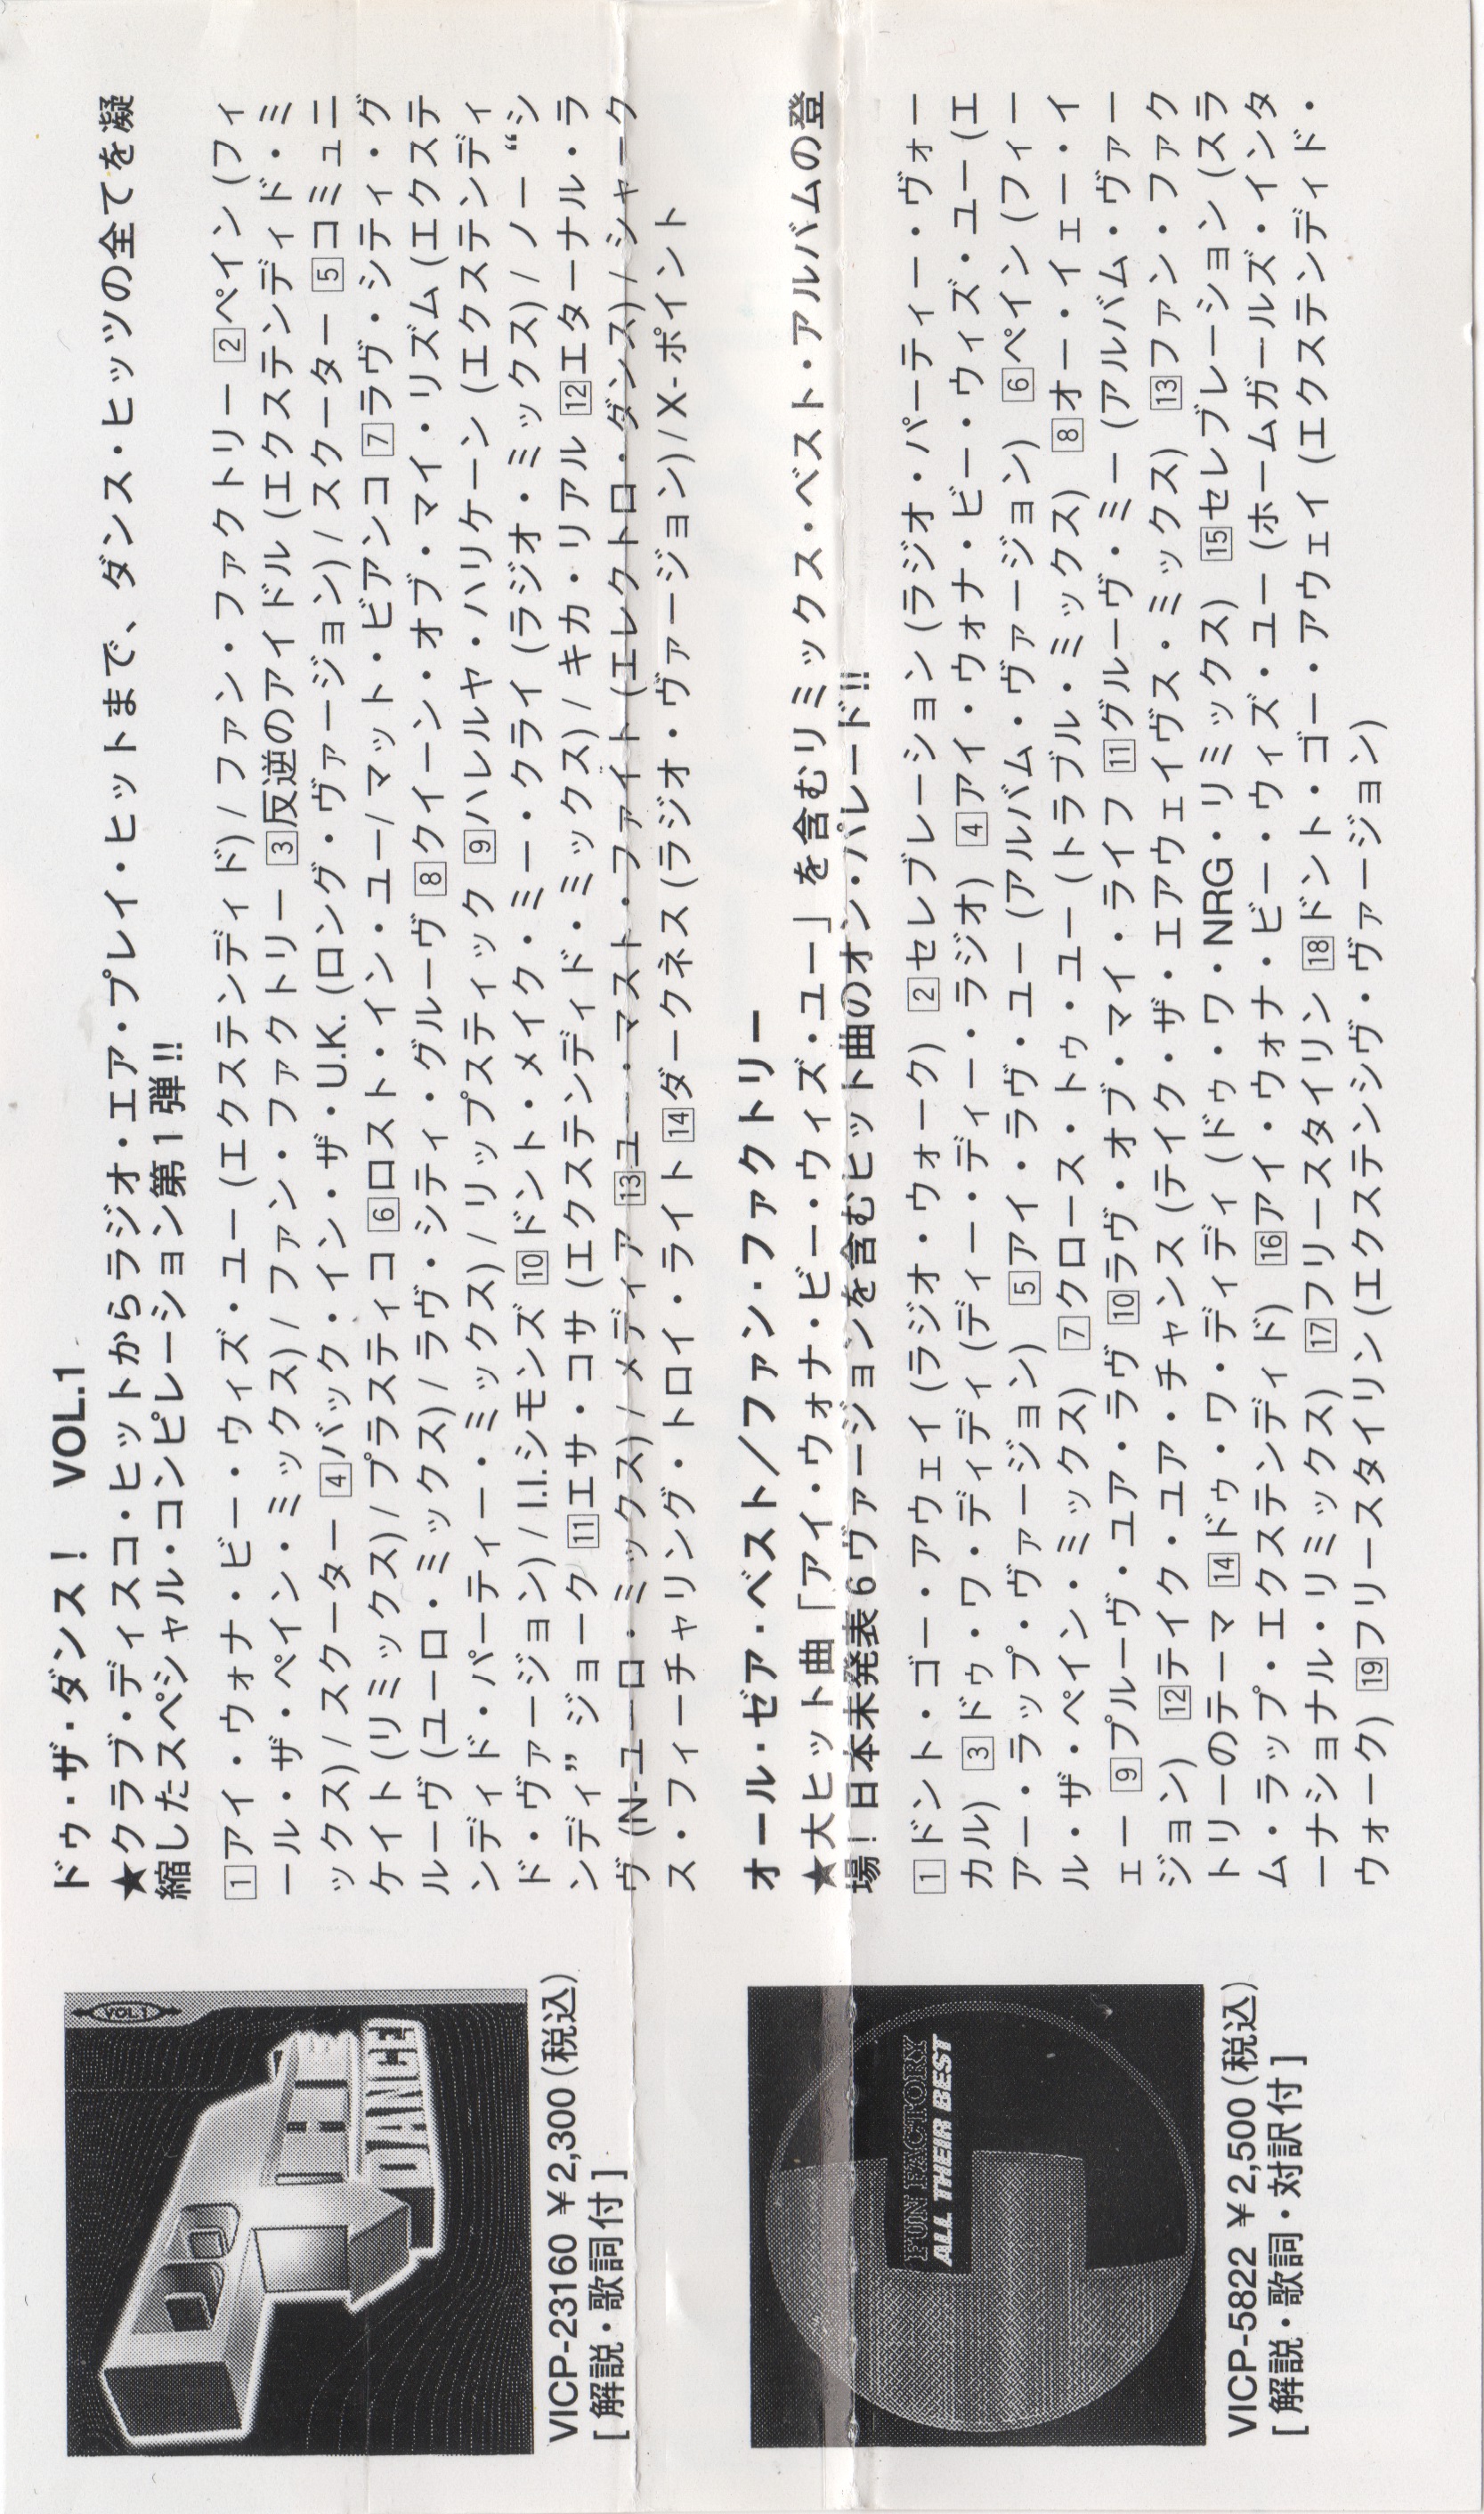 ドゥ・ザ・ダンス！　VOL.1
★クラブ・ディスコ・ヒットからラジオ・エア・プレイ・ヒットまで、ダンス・ヒッツの全てを凝
縮したスペシャル・コンピレーション第1弾!!
1アイ・ウォナ・ビー・ウィズ・ユー (エクステンディド) / ファン・ファクトリー 2ペイン (フィ
ール・ザ・ペイン・ミックス) / ファン・ファクトリー 3反逆のアイドル (エクステンディド・ミ
ックス) / スクーター 4バック・イン・ザ・U.K. (ロング・ヴァージョン) / スクーター 5コミュニ
ケイト (リミックス) / プラスティコ 6ロスト・イン・ユー / マット・ビアンコ 7ラヴ・シティ・グ
ルーヴ (ユーロ・ミックス) / ラヴ・シティ・グルーヴ 8クイーン・オブ・マイ・リズム (エクステ
ンディド・パーティー・ミックス) / リップスティック 9ハレルヤ・ハリケーン (エクステンディ
ド・ヴァージョン) / I.I.シモンズ 10ドント・メイク・ミー・クライ (ラジオ・ミックス) / ノー “シ
ンディ” ジョーク 11エサ・コサ (エクステンディド・ミックス) / キカ・リアル 12エターナル・ラ
ヴ (N-ユーロ・ミックス) / メディア 13ユー・マスト・ファイト (エレクトロ・ダンス) / シャーク
ス・フィーチャリング・トロイ・ライト 14ダークネス (ラジオ・ヴァージョン) / X-ポイント
VOL 1
DANCE
VICP-23160 ￥2,300 (税込)
[ 解説・歌詞付 ]
オール・ゼア・ベスト／ファン・ファクトリー
★大ヒット曲「アイ・ウォナ・ビー・ウィズ・ユー」を含むリミックス・ベスト・アルバムの登
場！日本未発表6ヴァージョンを含むヒット曲のオン・パレード!!
1ドント・ゴー・アウェイ (ラジオ・ウォーク) 2セレブレーション (ラジオ・パーティー・ヴォー
カル) 3ドゥ・ワ・ディディ (ディー・ディー・ラジオ) 4アイ・ウォナ・ビー・ウィズ・ユー (エ
アー・ラップ・ヴァージョン) 5アイ・ラヴ・ユー (アルバム・ヴァージョン) 6ペイン (フィー
ル・ザ・ペイン・ミックス) 7クロース・トゥ・ユー (トラブル・ミックス) 8オー・イェー・イ
ェー 9プルーヴ・ユア・ラヴ 10ラヴ・オブ・マイ・ライフ 11グルーヴ・ミー (アルバム・ヴァー
ジョン) 12テイク・ユア・チャンス (テイク・ザ・エアウェイヴス・ミックス) 13ファン・ファク
トリーのテーマ 14ドゥ・ワ・ディディ (ドゥ・ワ・NRG・リミックス) 15セレブレーション (スラ
ム・ラップ・エクステンディド) 16アイ・ウォナ・ビー・ウィズ・ユー (ホームガールズ・インタ
ーナショナル・リミックス) 17フリースタイリン 18ドント・ゴー・アウェイ (エクステンディド・
ウォーク) 19フリースタイリン (エクステンシヴ・ヴァージョン)
FUN FACTORY
ALL THEIR BEST
VICP-5822 ￥2,500 (税込)
[ 解説・歌詞・対訳付 ]